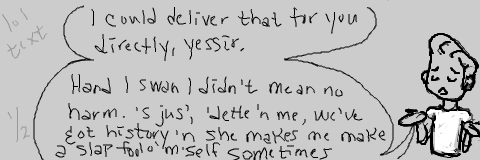 lol
text
I could deliver that for you
directly, yessir.
Hand I swan I didn't mean no
harm. 's jus', 'dette 'n me, we've
got history 'n she makes me make
a slap fool o' m'self sometimes
1/2